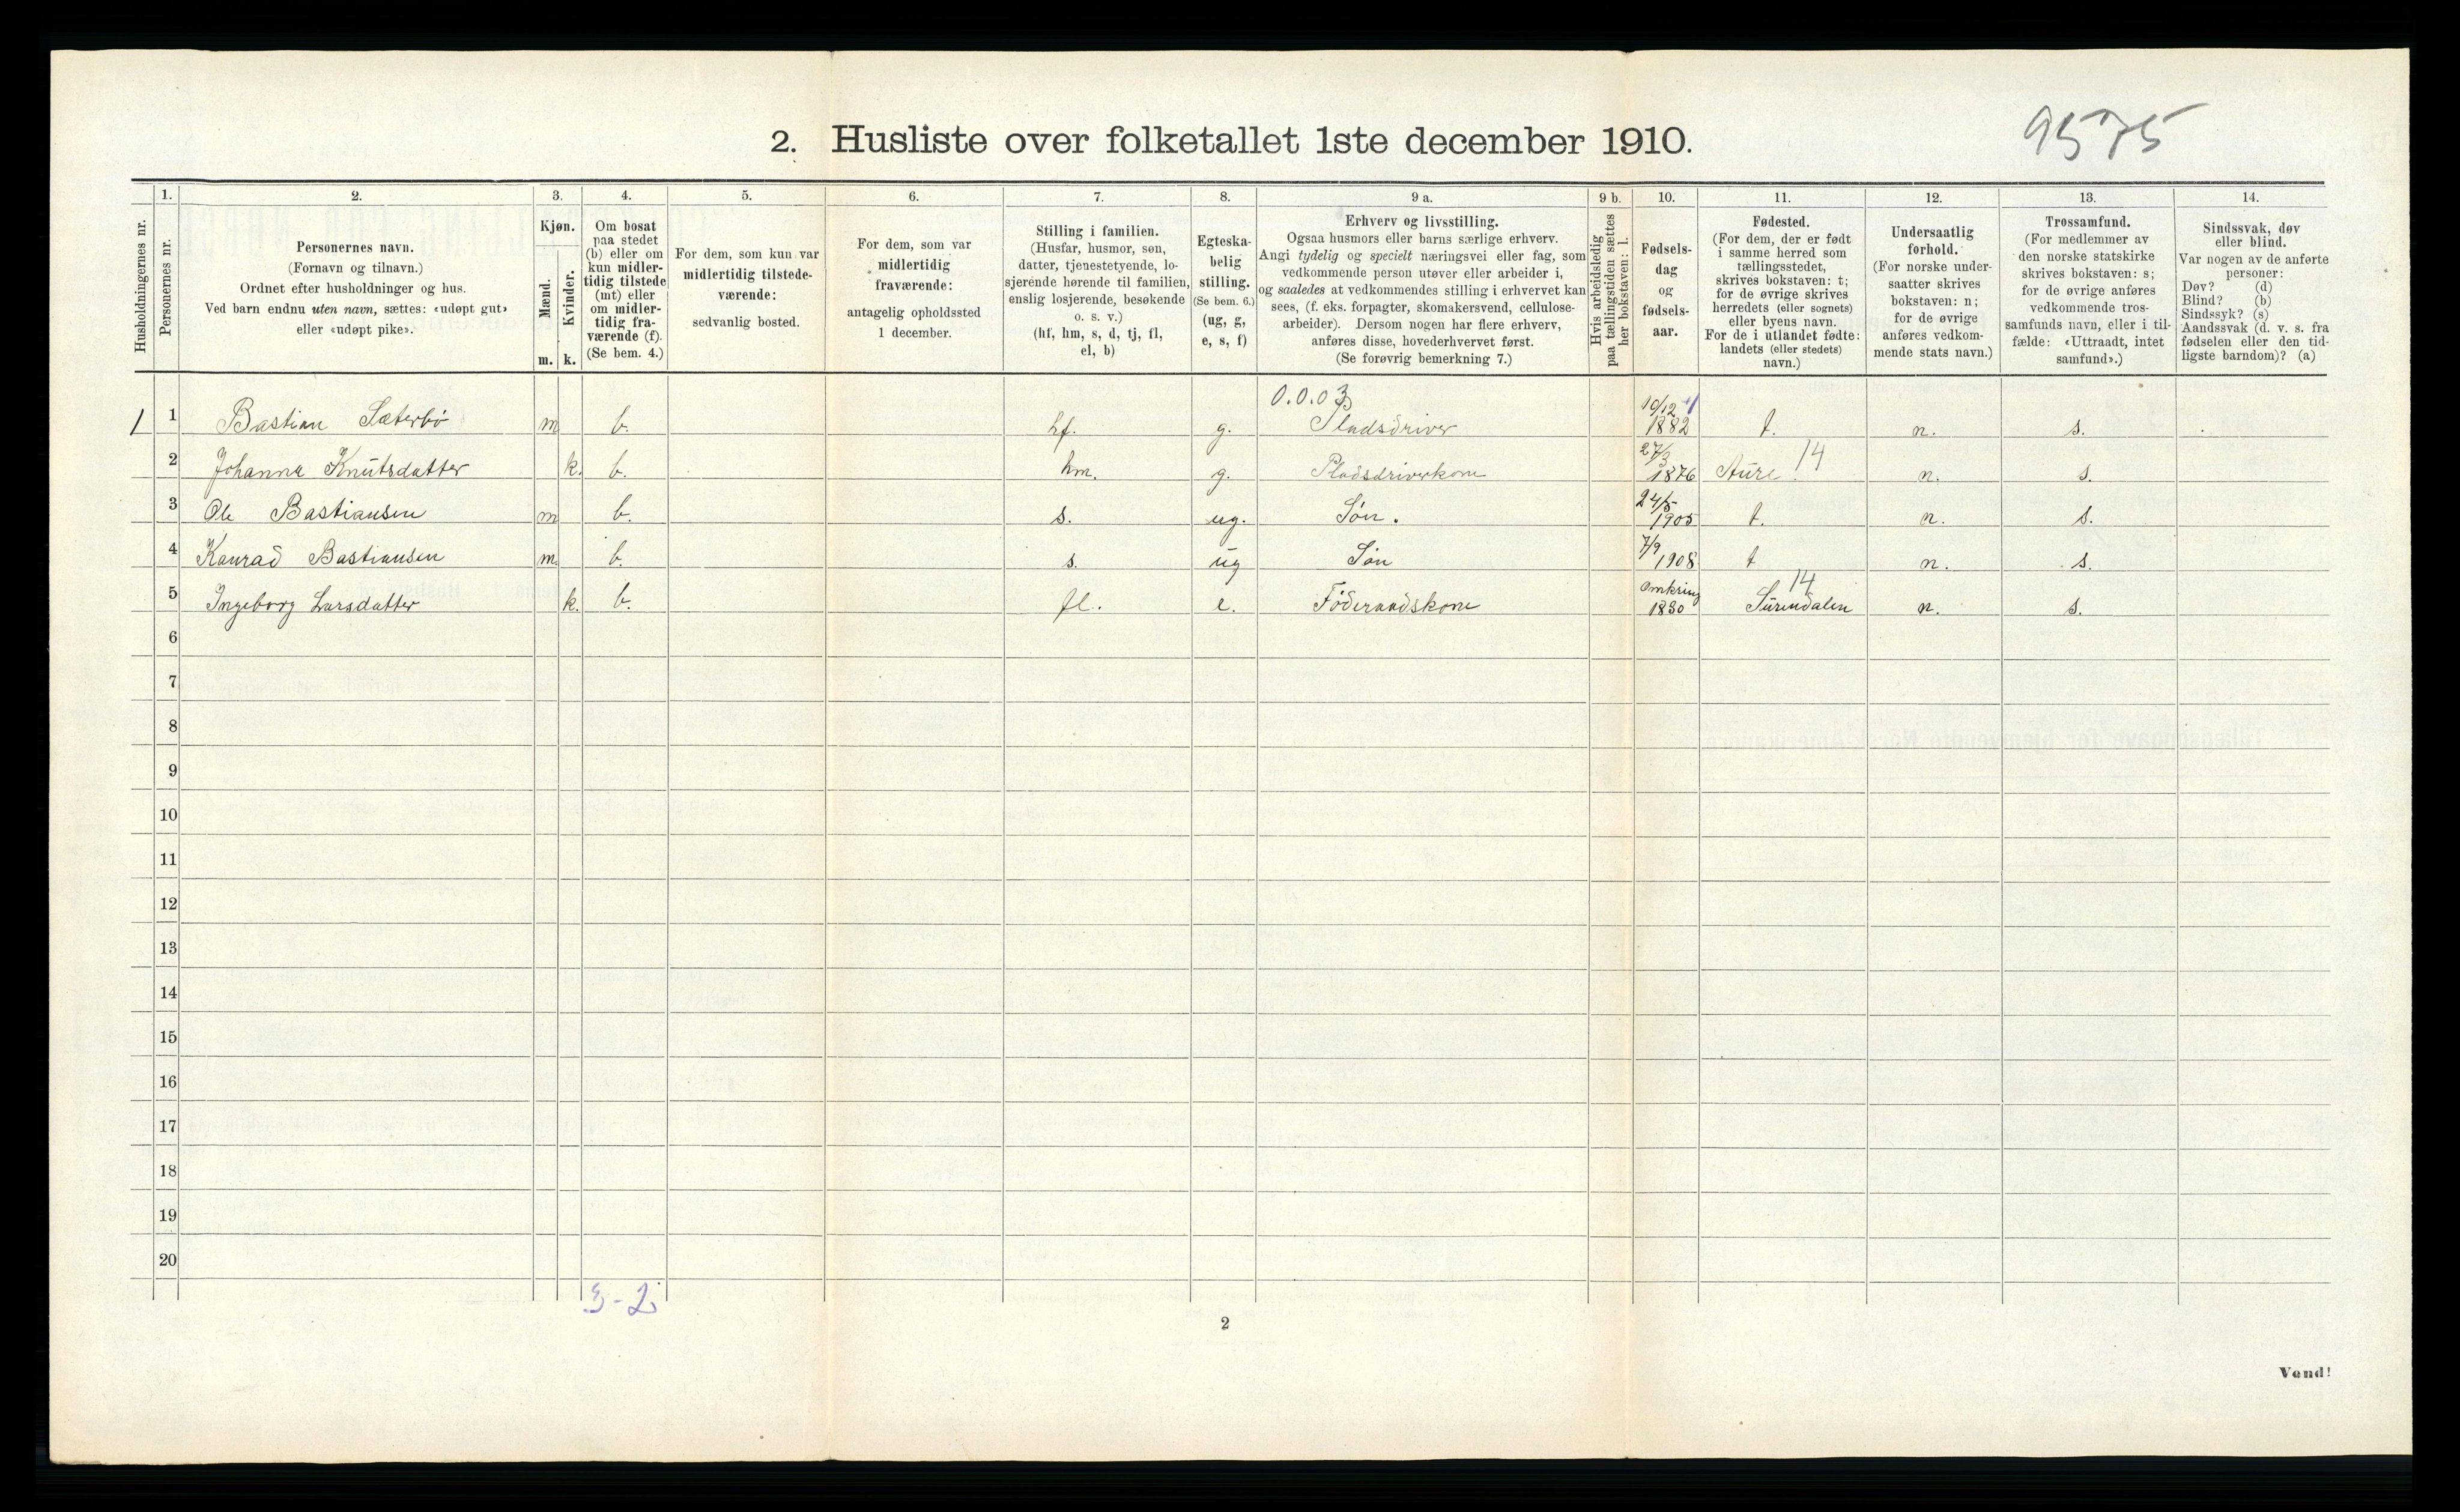 9575
2. Husliste over folketallet 1ste december 1910.
Husholdningernes nr.
1.
Personernes nr.
2.
Personernes navn.
(Fornavn og tilnavn.)
Ordnet efter husholdninger og hus.
Ved barn endnu uten navn, sættes: «udøpt gut»
eller «udøpt pike».
3.
Kjøn.
Mænd.
Kvinder.
m. k.
4.
Om bosat
paa stedet
(b) eller om
kun midler-
tidig tilstede
(mt) eller
om midler-
tidig fra-
værende (f).
(Se bem. 4.)
5.
For dem, som kun var
midlertidig tilstede-
værende:
sedvanlig bosted.
6.
For dem, som var
midlertidig
fraværende:
antagelig opholdssted
1 december.
7.
Stilling i familien.
(Husfar, husmor, søn,
datter, tjenestetyende, lo-
sjerende hørende til familien,
enslig losjerende, besøkende
o. s. v.)
(hf, hm, s, d, tj, fl,
el, b)
8.
Egteska-
belig
stilling.
(Se bem. 6.)
(ug, g,
e, s, f)
9 a.
Erhverv og livsstilling.
Ogsaa husmors eller barns særlige erhverv.
Angi tydelig og specielt næringsvei eller fag, som
vedkommende person utøver eller arbeider i,
og saaledes at vedkommendes stilling i erhvervet kan
sees, (f. eks. forpagter, skomakersvend, cellulose-
arbeider). Dersom nogen har flere erhverv,
anføres disse, hovederhvervet først.
(Se forøvrig bemerkning 7.)
9 b.
Hvis arbeidsledig
paa tællingstiden sættes
her bokstaven: l.
10.
Fødsels-
dag
og
fødsels-
aar.
11.
Fødested.
(For dem, der er født
i samme herred som
tællingsstedet,
skrives bokstaven: t;
for de øvrige skrives
herredets (eller sognets)
eller byens navn.
For de i utlandet fødte:
landets (eller stedets)
navn.)
12.
Undersaatlig
forhold.
(For norske under-
saatter skrives
bokstaven: n;
for de øvrige
anføres vedkom-
mende stats navn.)
13.
Trossamfund.
(For medlemmer av
den norske statskirke
skrives bokstaven: s;
for de øvrige anføres
vedkommende tros-
samfunds navn, eller i til-
fælde: «Uttraadt, intet
samfund».)
14.
Sindssvak, døv
eller blind.
Var nogen av de anførte
personer:
Døv? (d)
Blind? (b)
Sindssyk? (s)
Aandssvak (d. v. s. fra
fødselen eller den tid-
ligste barndom)? (a)
0.0.03
1 1 Bastian Sæterbö m b. hf. g. Pladsdriver 10/12 1882 t. n. s.
2 Johanna Knutsdatter k. b. hm. g. Pladsdriverkone 27/3 1876 Aure. 14 n. s.
3 Ole Bastiansen m b. s. ug. Sön. 24/5 1905 t. n. s.
4 Konrad Bastiansen m. b. s. ug Sön 7/9 1908 t n. s.
5 Ingeborg Larsdatter k. b. fl. e. Föderaadskone Omkring 1830 Surendalen 14 n. s.
6
7
8
9
10
11
12
13
14
15
16
17
18
19
20
3-2
2
Vend!